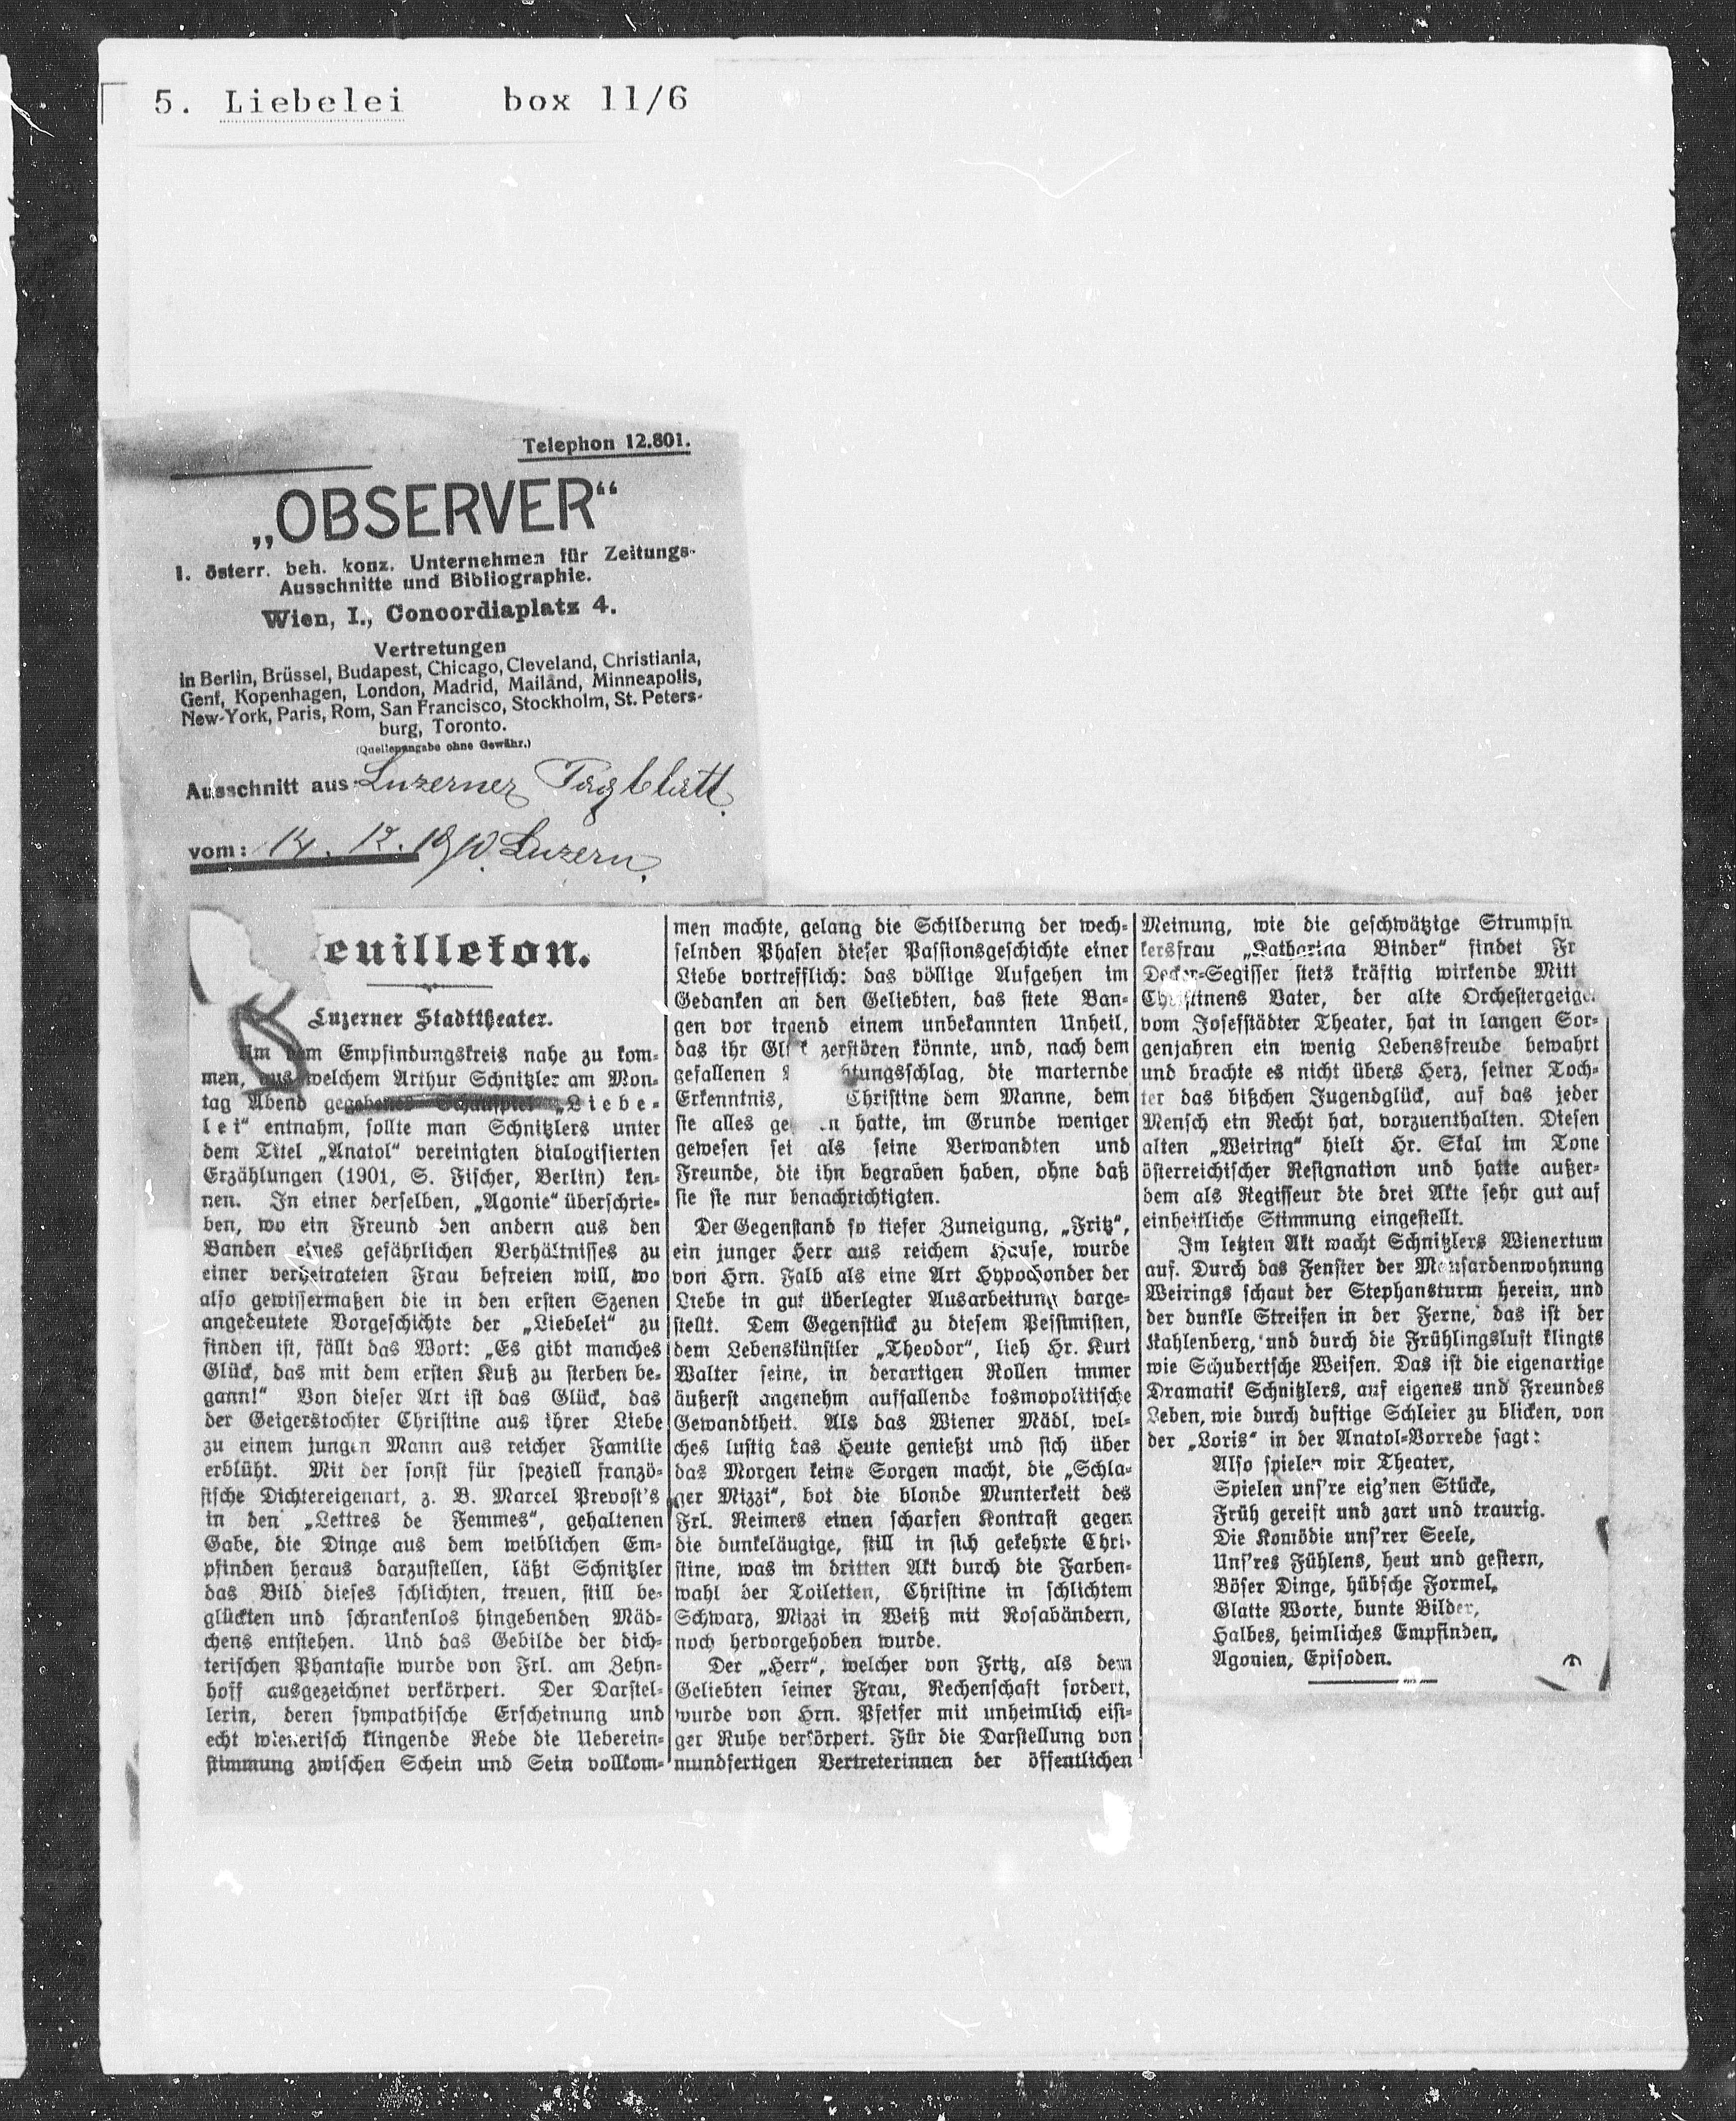 5. Liebelei box 11/6
Telephon 12.801.
„OBSERVER“
I. österr. beh. konz. Unternehmen für Zeitungs-
Ausschnitte und Bibliographie.
Wien, I., Concordiaplatz 4.
Vertretungen
in Berlin, Brüssel, Budapest, Chicago, Cleveland, Christiania,
Genf, Kopenhagen, London, Madrid, Mailand, Minneapolis,
New-York, Paris, Rom, San Francisco, Stockholm, St. Peters-
burg, Toronto.
(Quellenangabe ohne Gewähr.)
Ausschnitt aus: Luzerner Tagblatt
vom: 14. 12. 1910. Luzern.
euilleton.
Luzerner Stadttheater.
Um dem Empfindungskreis nahe zu kom-
men, aus welchem Arthur Schnitzler am Mon-
tag Abend gegebenes Schauspiel „Liebe-
lei“ entnahm, sollte man Schnitzlers unter
dem Titel „Anatol“ vereinigten dialogisierten
Erzählungen (1901, S. Fischer, Berlin) ken-
nen. In einer derselben, „Agonie“ überschrie-
ben, wo ein Freund den andern aus den
Banden eines gefährlichen Verhältnisses zu
einer verheirateten Frau befreien will, wo
also gewissermaßen die in den ersten Szenen
angedeutete Vorgeschichte der „Liebelei“ zu
finden ist, fällt das Wort: „Es gibt manches
Glück, das mit dem ersten Kuß zu sterben be-
gann!“ Von dieser Art ist das Glück, das
der Geigerstochter Christine aus ihrer Liebe
zu einem jungen Mann aus reicher Familie
erblüht. Mit der sonst für speziell franzö-
sische Dichtereigenart, z. B. Marcel Prevost's
in den „Lettres de Femmes“, gehaltenen
Gabe, die Dinge aus dem weiblichen Em-
pfinden heraus darzustellen, läßt Schnitzler
das Bild dieses schlichten, treuen, still be-
glückten und schrankenlos hingebenden Mäd-
chens entstehen. Und das Gebilde der dich-
terischen Phantasie wurde von Frl. am Zehn-
hoff ausgezeichnet verkörpert. Der Darstel-
lerin, deren sympathische Erscheinung und
echt wienerisch klingende Rede die Ueberein-
stimmung zwischen Schein und Sein vollkom-
men machte, gelang die Schilderung der wech-
selnden Phasen dieser Passionsgeschichte einer
Liebe vortrefflich: das völlige Aufgehen im
Gedanken an den Geliebten, das stete Ban-
gen vor irgend einem unbekannten Unheil,
das ihr Glück zerstören könnte, und, nach dem
gefallenen htungsschlag, die marternde
Erkenntnis, Christine dem Manne, dem
sie alles ge n hatte, im Grunde weniger
gewesen sei als seine Verwandten und
Freunde, die ihn begraben haben, ohne daß
sie sie nur benachrichtigten.
Der Gegenstand so tiefer Zuneigung, „Fritz“,
ein junger Herr aus reichem Hause, wurde
von Hrn. Falb als eine Art Hypochonder der
Liebe in gut überlegter Ausarbeitung darge-
stellt. Dem Gegenstück zu diesem Pessimisten,
dem Lebenskünstler „Theodor“, lieh Hr. Kurt
Walter seine, in derartigen Rollen immer
äußerst angenehm auffallende kosmopolitische
Gewandtheit. Als das Wiener Mädl, wel-
ches lustig das Heute genießt und sich über
das Morgen keine Sorgen macht, die „Schla-
ger Mizzi“, bot die blonde Munterkeit des
Frl. Reimers einen scharfen Kontrast gegen
die dunkeläugige, still in sich gekehrte Chri-
stine, was im dritten Akt durch die Farben-
wahl der Toiletten, Christine in schlichtem
Schwarz, Mizzi in Weiß mit Rosabändern,
noch hervorgehoben wurde.
Der „Herr“, welcher von Fritz, als dem
Geliebten seiner Frau, Rechenschaft fordert,
wurde von Hrn. Pfeifer mit unheimlich eisi-
ger Ruhe verkörpert. Für die Darstellung von
mundfertigen Vertreterinnen der öffentlichen
Meinung, wie die geschwätzige Strumpfn
kersfrau „Katharina Binder“ findet Fr
Decker-Segisser stets kräftig wirkende Mitt
Christinens Vater, der alte Orchestergeiger
vom Josefstädter Theater, hat in langen Sor-
genjahren ein wenig Lebensfreude bewahrt
und brachte es nicht übers Herz, seiner Toch-
ter das bißchen Jugendglück, auf das jeder
Mensch ein Recht hat, vorzuenthalten. Diesen
alten „Weiring“ hielt Hr. Skal im Tone
österreichischer Resignation und hatte außer-
dem als Regisseur die drei Akte sehr gut auf
einheitliche Stimmung eingestellt.
Im letzten Akt wacht Schnitzlers Wienertum
auf. Durch das Fenster der Mansardenwohnung
Weirings schaut der Stephansturm herein, und
der dunkle Streifen in der Ferne, das ist der
Kahlenberg, und durch die Frühlingsluft klingts
wie Schubertsche Weisen. Das ist die eigenartige
Dramatik Schnitzlers, auf eigenes und Freundes
Leben, wie durch duftige Schleier zu blicken, von
der „Loris“ in der Anatol-Vorrede sagt:
Also spielen wir Theater,
Spielen uns're eig'nen Stücke,
Früh gereift und zart und traurig.
Die Komödie uns'rer Seele,
Uns'res Fühlens, heut und gestern,
Böser Dinge, hübsche Formel,
Glatte Worte, bunte Bilder,
Halbes, heimliches Empfinden,
Agonien, Episoden.